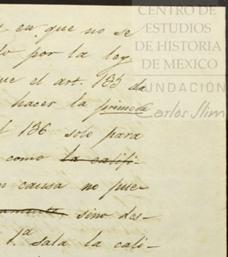 CENTRO DE
ESTUDIOS
DE HISTORIA
DE MÉXICO
FUNDACIÓN
Carlos Slim
en que no se
lo por la ley
que el art. 135 da
hacer la primera
l 136 solo para
como la califi-
n causa no pue-
sino des-
1.ª sala la cali-